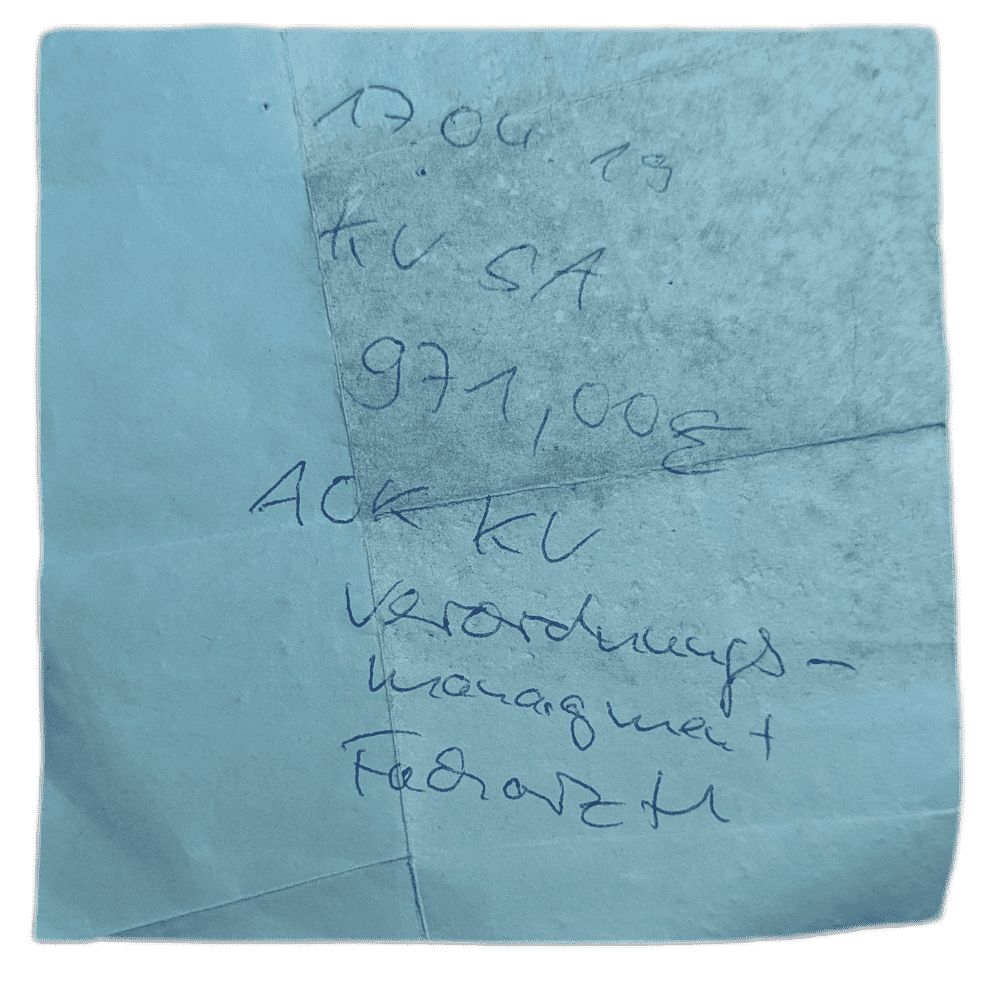 17.04.19
KV SA
971,00€
AOK KV
Verordnungs-
managment
Facharzt